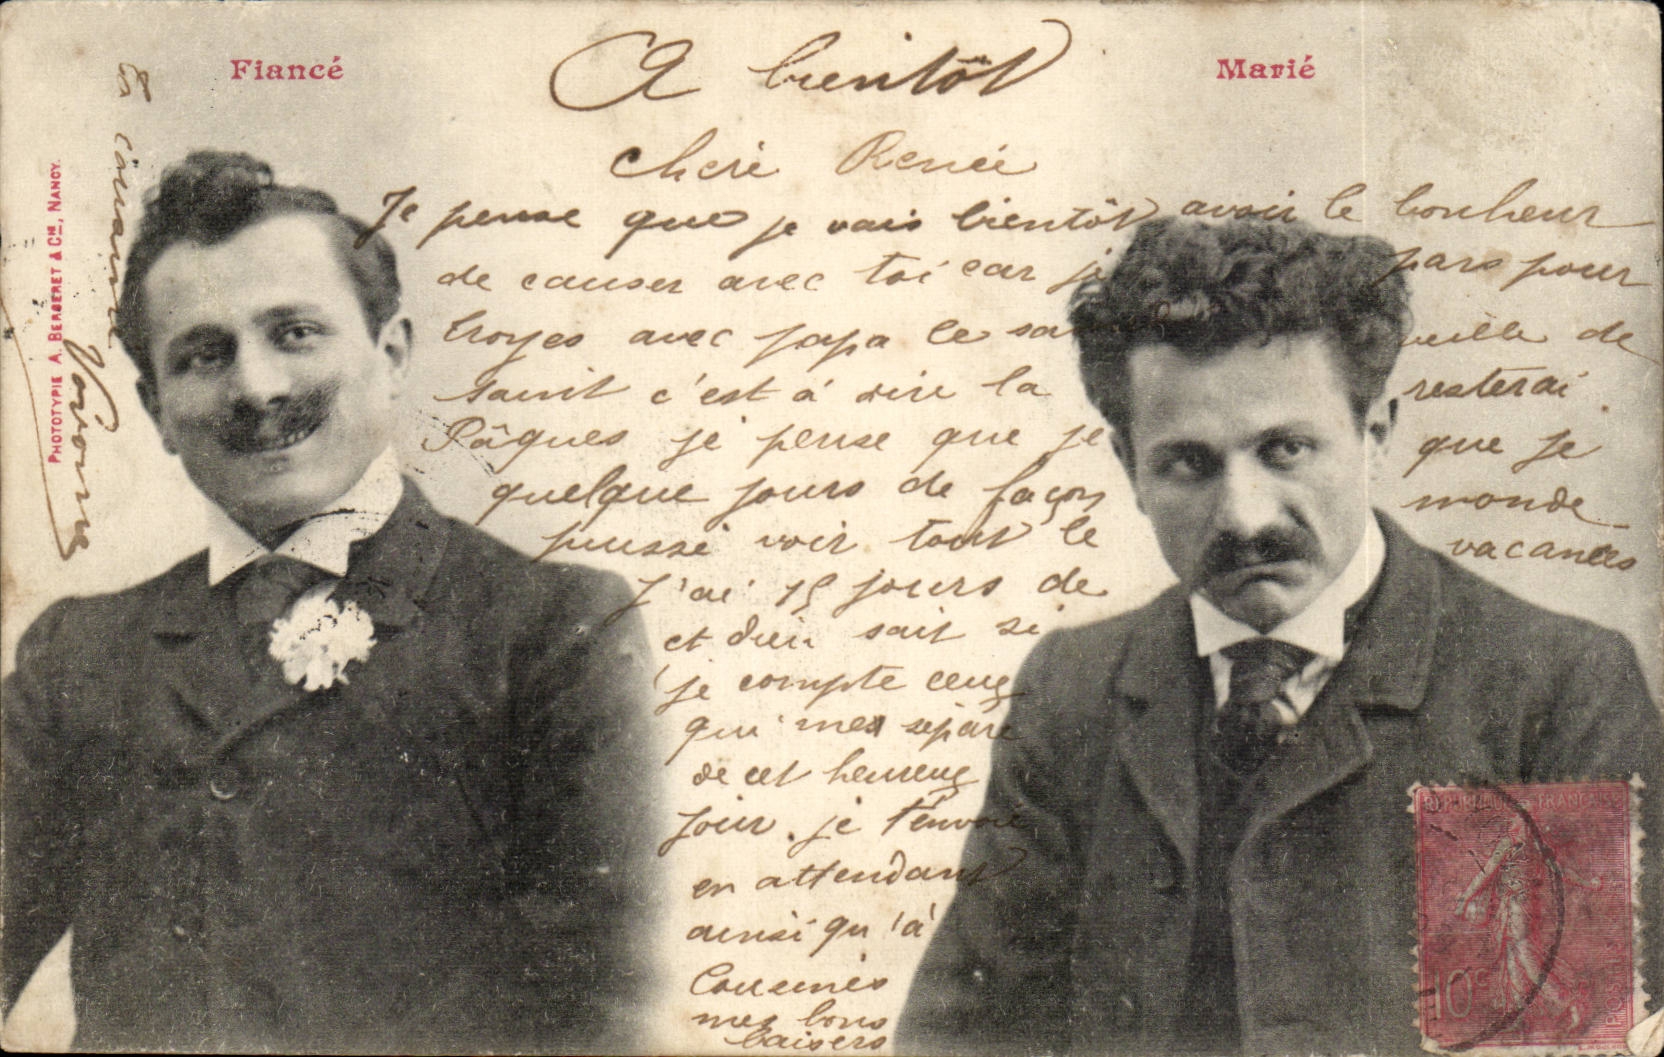 Fiancé
A bientôt
Marié
Chère Renée
Je pense que je vais bientôt avoir le bonheur
de causer avec toi car je pars pour
Troyes avec papa le sa veille de
saint c'est à dire la resterai
Pâques je pense que je que je
quelque jours de façon monde
puisse voir tout le vacances
J'ai 15 jours de
et dieu sait si
je compte ceux
qui mes sépare
de cet heureux
jour. je t'envoie
en attendant
ainsi qu'à
Cousines
mes bons
baisers
Ta cousine
PHOTOTYPIE A. BERGERET & Cie, NANCY.
RÉPUBLIQUE FRANÇAISE
10c
POSTES